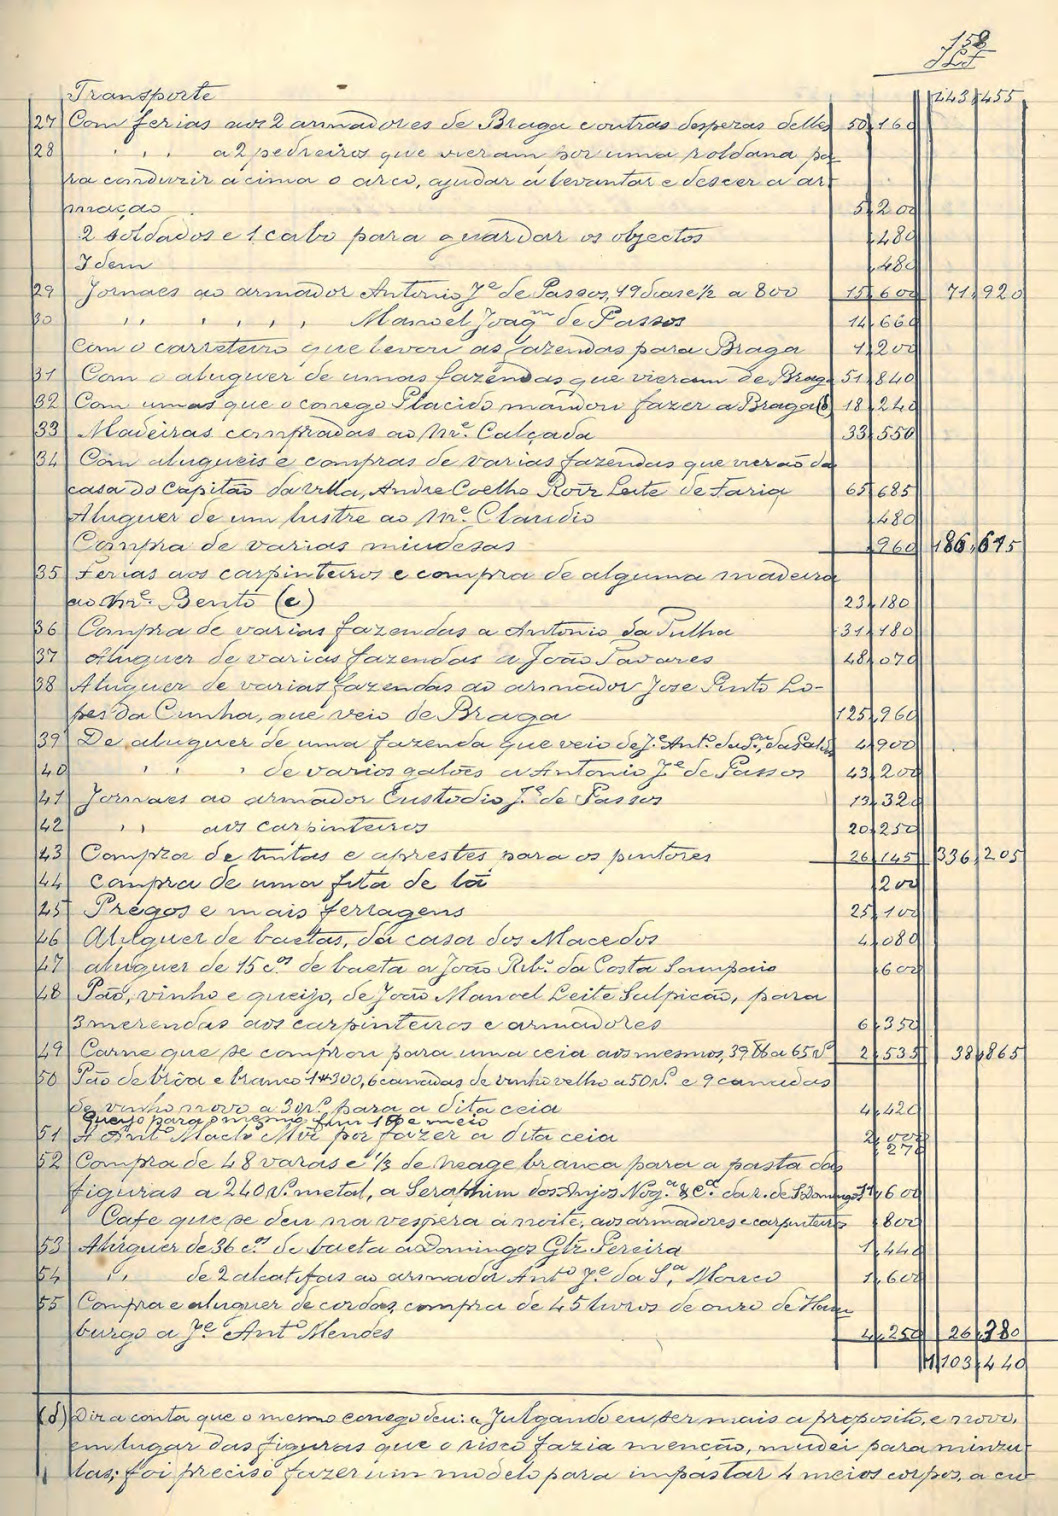 158
Transporte 443,455
27 Com ferias aos 2 armadores de Braga e outras despezas delles 50,160
28 " " " a 2 pedreiros que vieram por uma roldana pa-
ra conduzir acima o arco, ajudar a levantar e descer a ar-
mação 5,200
2 soldados e 1 cabo para guardar os objectos ,480
Idem ,480
29 Jornaes ao armador Antonio Je de Passos, 19 dias e 1/2 a 800 15,600 71,920
30 " " " " " Manoel Joaqm de Passos 14,660
Com o carreteiro que levou as fazendas para Braga 1,200
31 Com o aluguer de umas fazendas que vieram de Braga 51,840
32 Com umas que o conego Placido mandou fazer a Braga (d) 18,240
33 Madeiras compradas ao Me. Calçada 33,550
34 Com alugueis e compras de varias fazendas que vierão da
casa do Capitão da villa, Andre Coelho Roiz Leite de Faria 65,685
Aluguer de um lustre ao Me. Claudio ,480
Compra de varias miudesas ,960 186,615
35 Ferias aos carpinteiros e compra de alguma madeira
ao Me. Bento (e) 23,180
36 Compra de varias fazendas a Antonio da Pulha 31,180
37 Aluguer de varias fazendas a João Tavares 48,070
38 Aluguer de varias fazendas ao armador Jose Pinto Lo-
pes da Cunha, que veio de Braga 125,960
39 De aluguer de uma fazenda que veio de Je Anto da Sa, da 4,900
40 " " " de varios galões a Antonio Je de Passos 43,200
41 Jornaes ao armador Custodio Je de Passos 13,320
42 " " aos carpinteiros 20,250
43 Compra de tintas e aprestes para os pintores 26,145 336,205
44 Compra de uma fita de lã ,200
45 Pregos e mais ferragens 25,100
46 Aluguer de baetas, da casa dos Macedos 4,080
47 aluguer de 15 cos de baeta a João Ribo da Costa Sampaio ,600
48 Pão, vinho e queijo, de João Manoel Leite Sulpicão, para
3 merendas aos carpinteiros e armadores 6,350
49 Carne que se comprou para uma ceia aos mesmos, 39 a 65 rs 2,535 38,865
50 Pão de brôa e branco 1#300, 6 canadas de vinho velho a 50 rs. e 9 canadas
de vinho novo a 30 rs. para a dita ceia 4,420
Queijo para o mesmo fim e meio ,270
51 A Anto Macho por fazer a dita ceia 2,000
52 Compra de 48 varas e 1/3 de neage branca para a pasta das
figuras a 240 rs. metal, a Seraphim dos Anjos Noga & Ca da r. de S. Domingos 11,600
Cafe que se deu na vespera á noite, aos armadores e carpinteiros ,800
53 Aluguer de 36 cos de baeta a Domingos Glz Pereira 1,440
54 " " de 2 alcatifas ao armador Anto Je da Sa Mouco 1,600
55 Compra e aluguer de cordas, compra de 45 livros de ouro de Ham-
burgo a Je Anto Mendes 4,250 26,380
1,103,440
(d) Diz a conta que o mesmo conego deu: « Julgando eu, ser mais a proposito, e novo,
em lugar das figuras que o risco fazia menção, mudei para minzu-
las; foi preciso fazer um modelo para impastar 4 meios corpos, a cu-